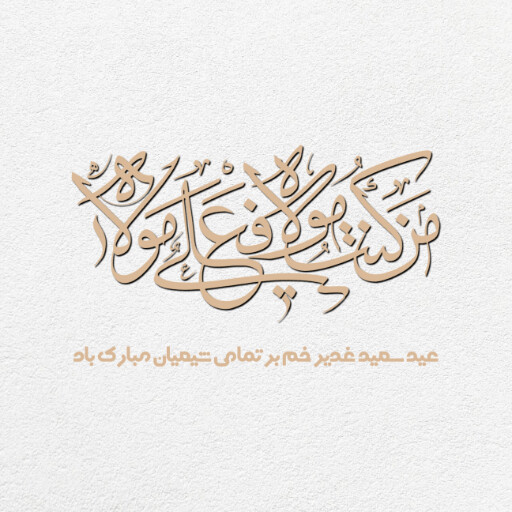 من کنت مولاه فعلی مولاه
عید سعید غدیر خم بر تمامی شیعیان مبارک باد